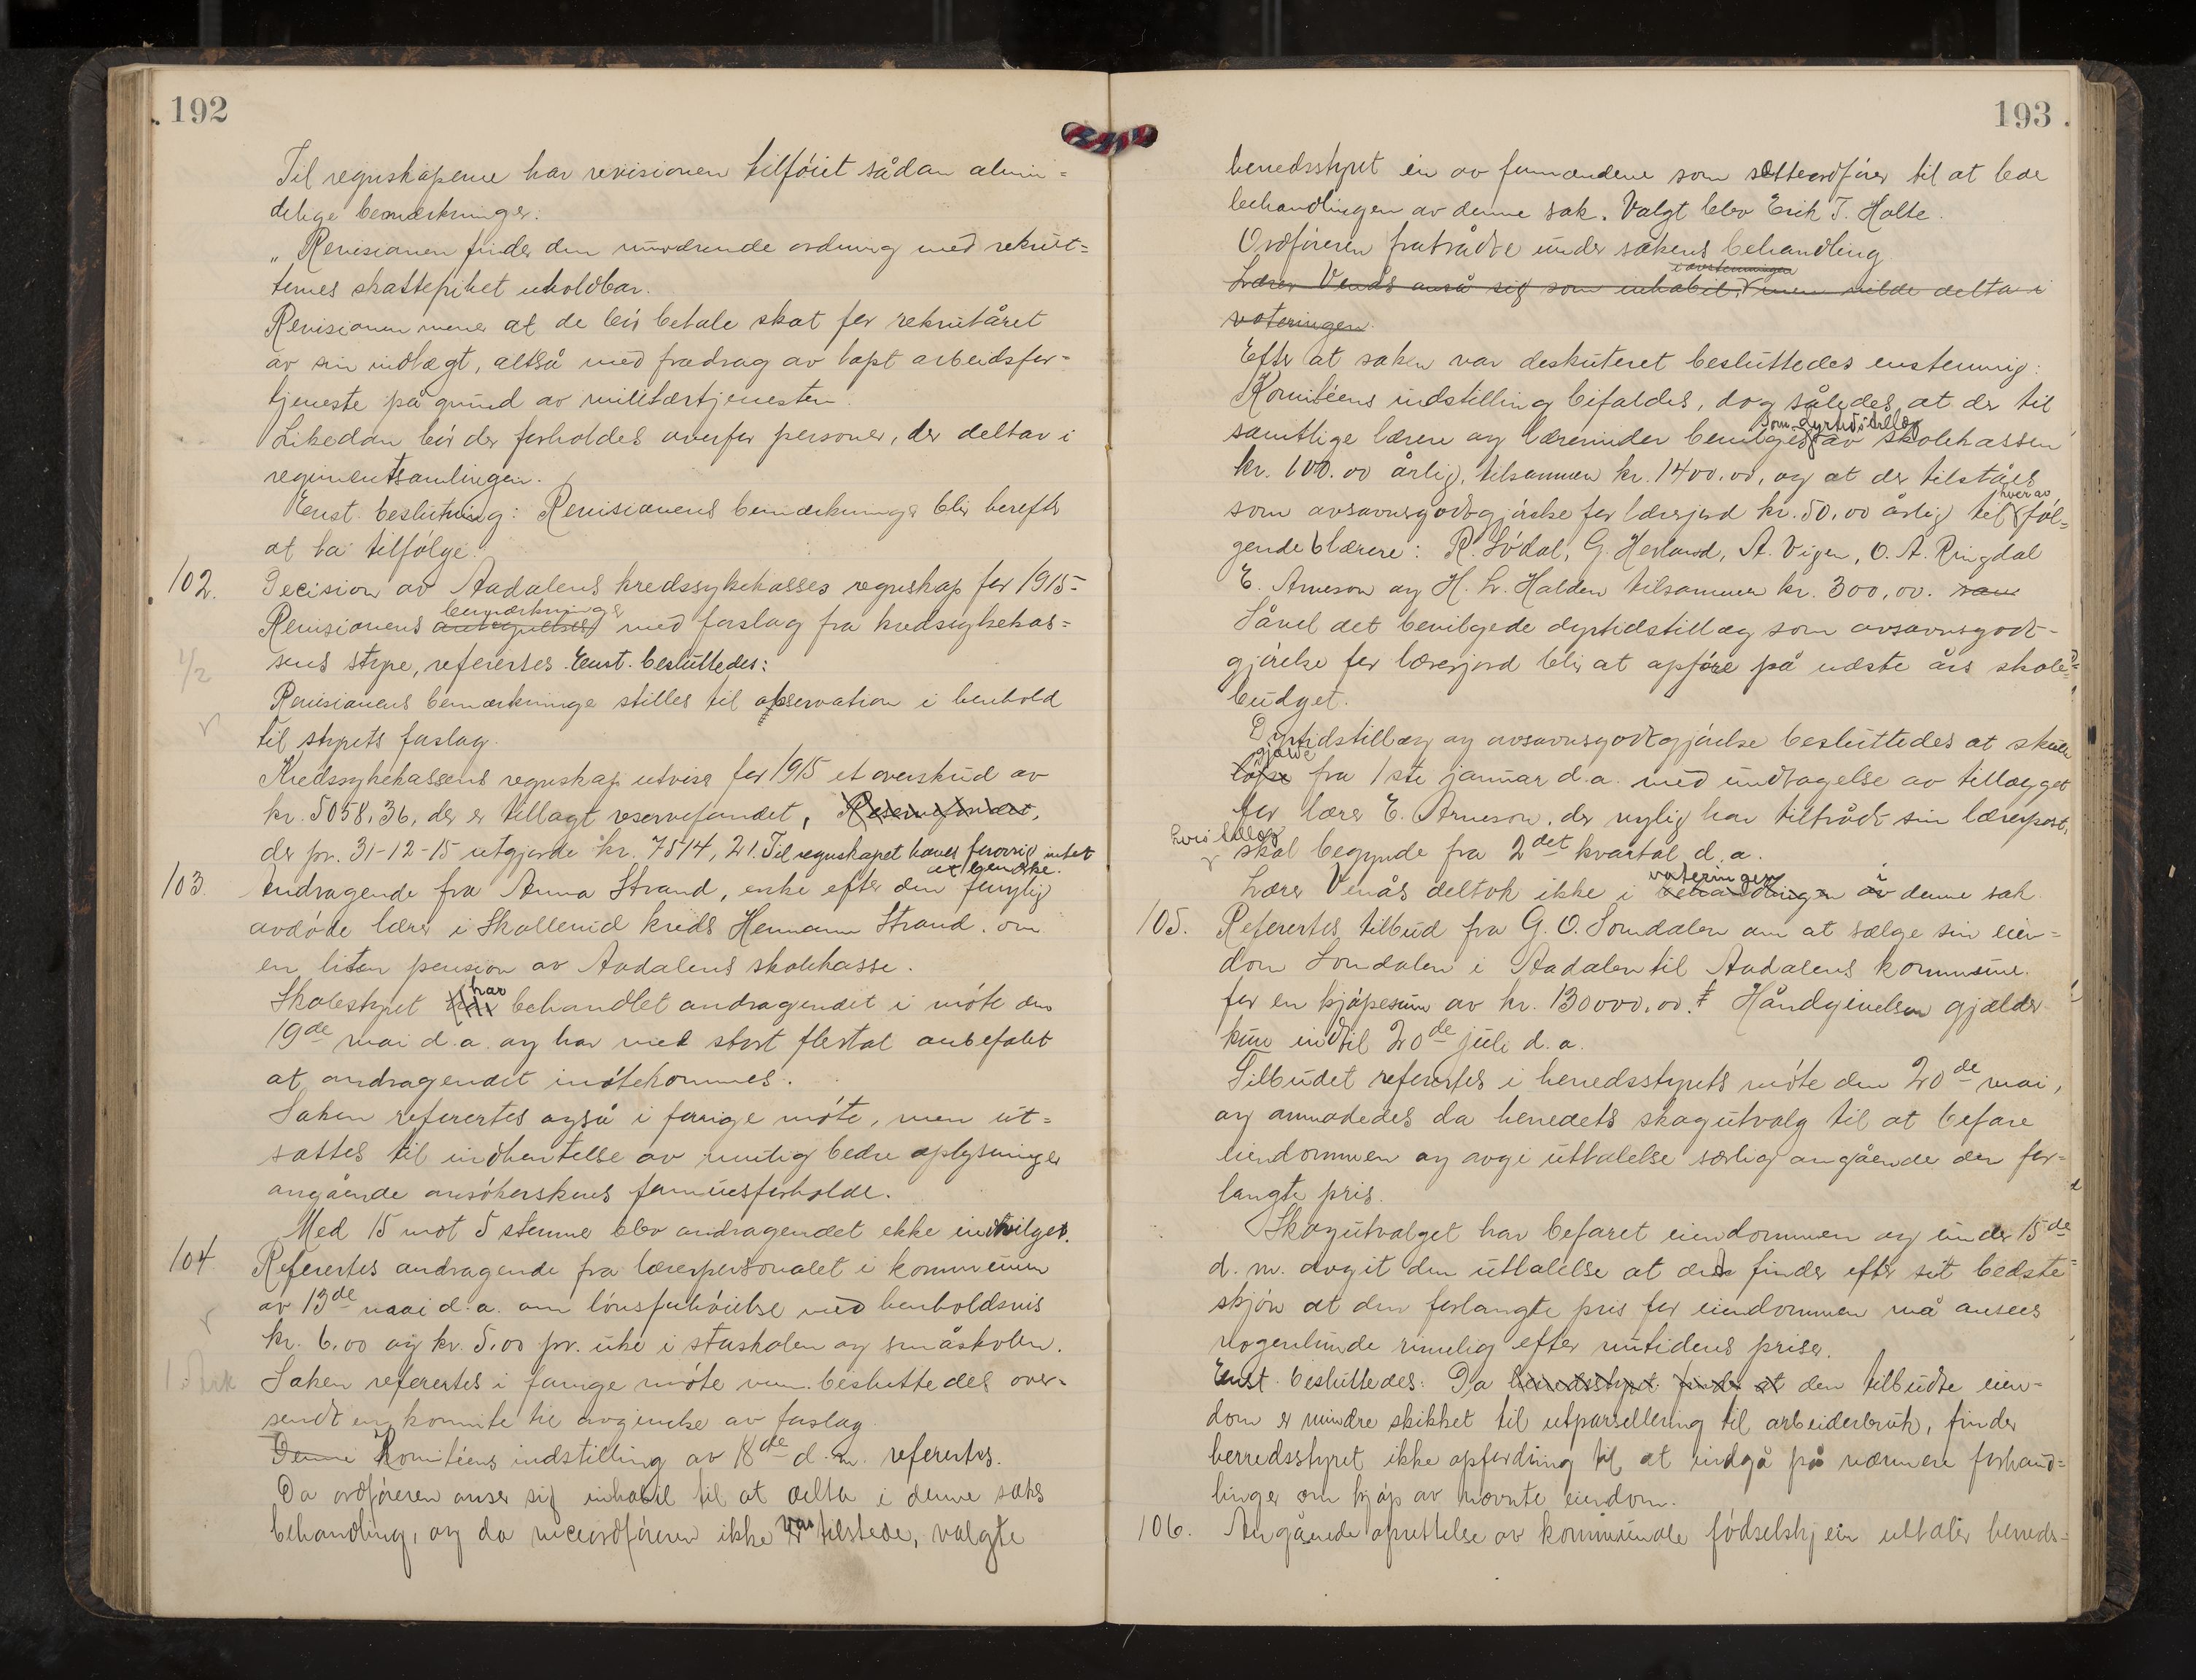 192
Til regnskaperne har revisionen tilføiet sådan almin=
delige bemærkninger:
„Revisionen finder den nuværende ordning med rekrut=
ternes skattepliket uholdbar.
Revisionen mener at de bør betale skat for rekrutåret
av sin indtægt, altså med fradrag av tapt arbeidsfor=
tjeneste på grund av militærtjenesten.
Likedan bør der forholdes overfor personer, der deltar i
regimentsamlingen.
Enst. beslutning: Revisionens bemærkninger blir herefter
at ta tilfølge.
102. Decision av Aadalens kredssykekasses regnskap for 1915-
bemærkninger
Revisionens antegnelser med forslag fra kredssykekas=
sens styre, refereres. Enst. besluttedes:
Revisionens bemærkninger stilles til observation i henhold
til styrets forslag.
Kredssykekassens regnskap utviser for 1915 et overskud av
kr. 5058,36, der er tillagt reservefondet, Reservefondet,
der pr. 31-12-15 utgjorde kr. 7814,21. Til regnskapet haves forøvrig intet
at bemærke.
103. Andragende fra Anna Strand, enke efter den fornylig
avdøde lærer i Skollerud kreds Hermann Strand, om
en liten pension av Aadalens skolekasse.
har
Skolestyret behandlet andragendet i møte den
19de mai d.a. og har med stort flertal anbefalet
at andragendet imøtekommes.
Saken referertes også i forrige møte, men ut=
sattes til indhentelse av mulig bedre oplysninger
angående ansøkerskens formuesforholde.
Med 15 mot 5 stemmer blev andragendet ikke indvilget.
104 Referertes andragende fra lærerpersonalet i kommunen
av 13de mai d.a. om lønsforhøielse med henholdsvis
kr. 6,00 og kr. 5,00 pr. uke i storskolen og småskolen.
Saken referertes i forrige møte men besluttedes over=
sendt en komite til avgivelse av forslag.
Denne Komitéens indstilling av 18de d.m. referertes.
Da ordføreren anser sig inhabil til at delta i denne saks
behandling, og da viceordføreren ikke var tilstede, valgte
193
herredsstyret en av formændene som sætteordfører til at lede
behandlingen av denne sak. Valgt blev Erik T. Holte.
Ordføreren fratrådte under sakens behandling
i avstemningen
Lærer Venås anså sig som inhabil, men vilde delta i
voteringen.
Efter at saken var deskuteret besluttedes enstemmig:
Komitéens indstilling bifaldes, dog således at der til
som dyrtidstillæg
samtlige lærere og lærerinder bevilges av skolekassen
kr. 100.00 årlig, tilsammen kr. 1400.00, og at der tilståes
hver av
som avsavnsgodtgjørelse for lærerjord kr. 50,00 årlig til føl=
gende 6 lærere: R. Lødal, G. Herland, A. Vigen, O. A. Ringdal
E. Arneson og H. L. Halden tilsammen kr. 300,00.
Såvel det bevilgede dyrtidstillæg som avsavnsgodt-
gjørelse for lærerjord blir at opføre på næste års skole=
budget.
Dyrtidstillæg og avsavnsgodtgjørelse besluttedes at skulle
gjælde
løpe fra 1ste januar d.a. med undtagelse av tillægget
for lærer E. Arneson, der nylig har tiltrådt sin lærerpost,
hvis tillæg
skal begynde fra 2det kvartal d.a.
voteringen i
Lærer Venås deltok ikke i behandlingen av denne sak.
105. Referertes tilbud fra G. O. Somdalen om at sælge sin eien=
dom Somdalen i Aadalen til Aadalens kommune.
for en kjøpesum av kr. 130000,00. Håndgivelsen gjælder
kun indtil 20de juli d.a.
Tilbudet referertes i herredsstyrets møte den 20de mai,
og anmodedes da herredets skogutvalg til at befare
eiendommen og avgi uttalelse særlig angående den for=
langte pris.
Skogutvalget har befaret eiendommen og under 15de
d.m. avgit den uttalelse at det finder efter sit bedste
skjøn at den forlangte pris for eiendommen må ansees
nogenlunde rimelig efter nutidens priser.
Enst. besluttedes: Da herredsstyret finder at den tilbudte eien=
dom er mindre skikket til utparsellering til arbeiderbruk, finder
herredsstyret ikke opfordring til at indgå på nærmere forhand=
linger om kjøp av nævnte eiendom.
106. Angående oprettelse av kommunale fødselshjem uttaler herreds=